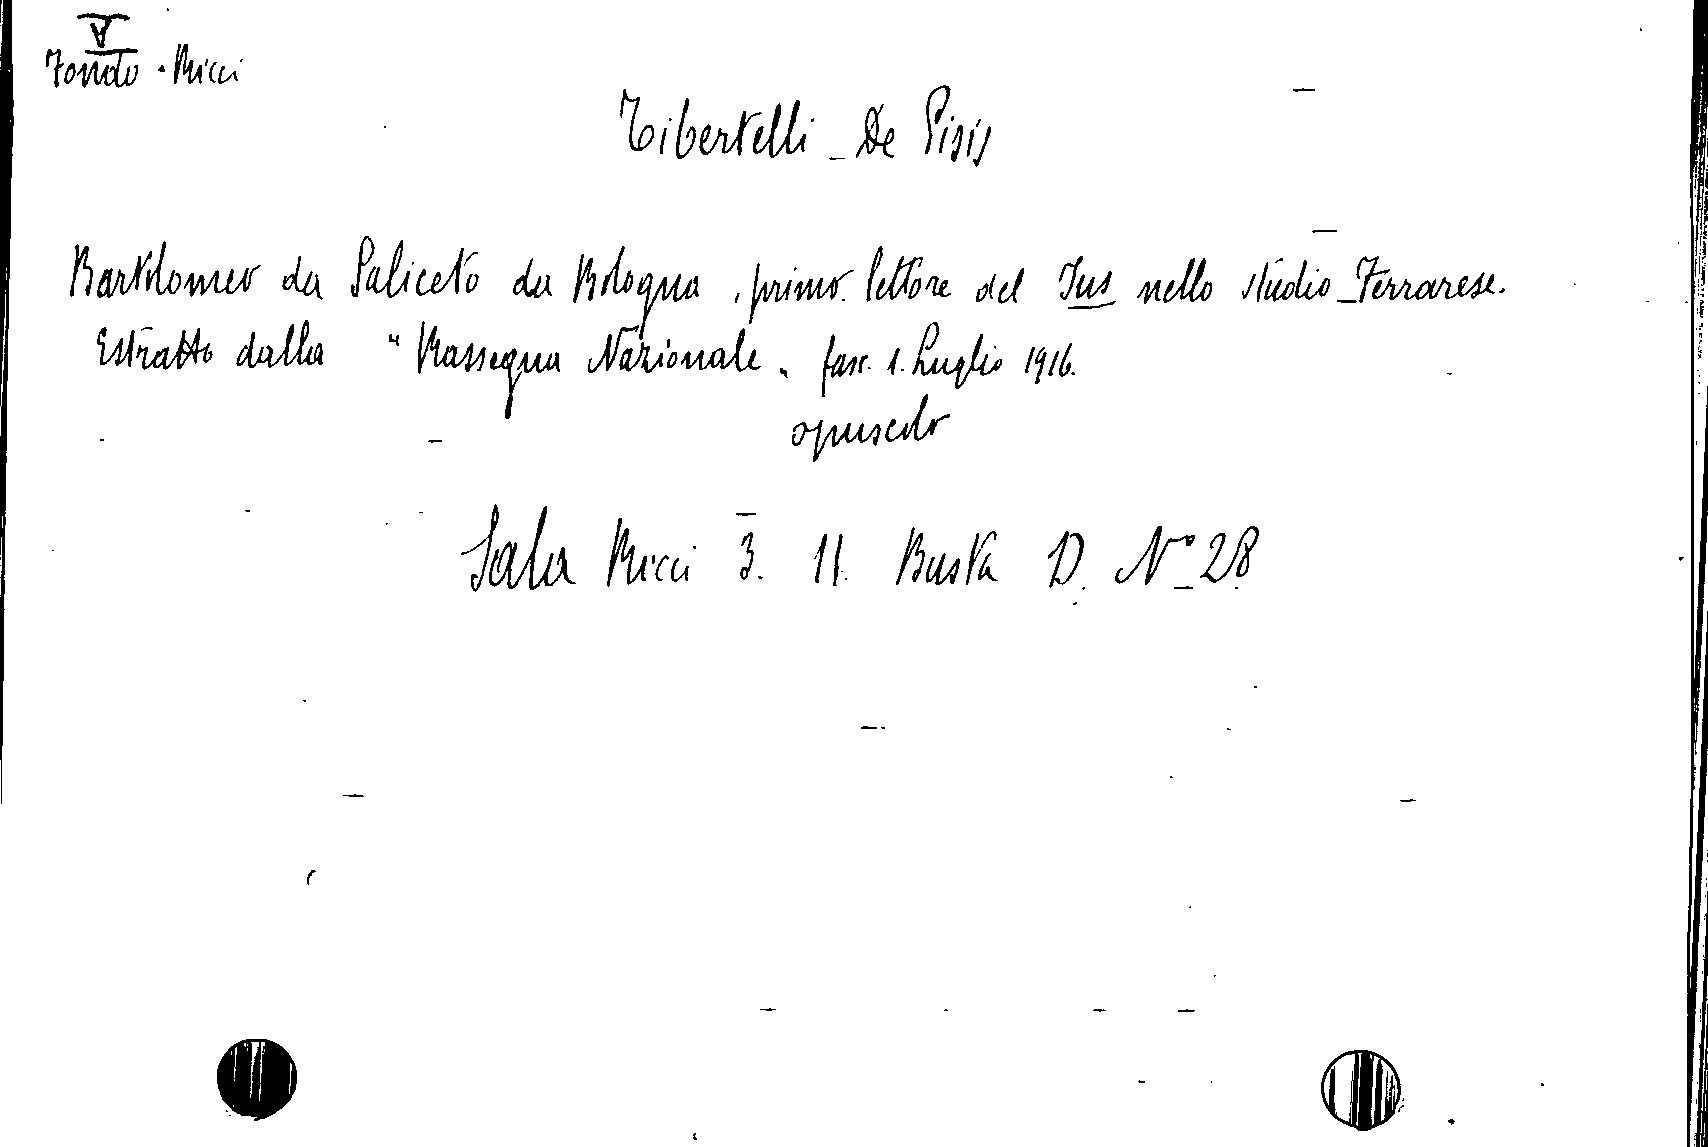 V
Fondo - Ricci
Tibertelli - De Pisis
Bartolomeo da Saliceto da Bologna, primo lettore del Jus nello studio Ferrarese.
Estratto dalla "Rassegna Nazionale" fasc. 1. Luglio 1916.
opuscolo
Sala Ricci 3. 11. Busta D. N° 28